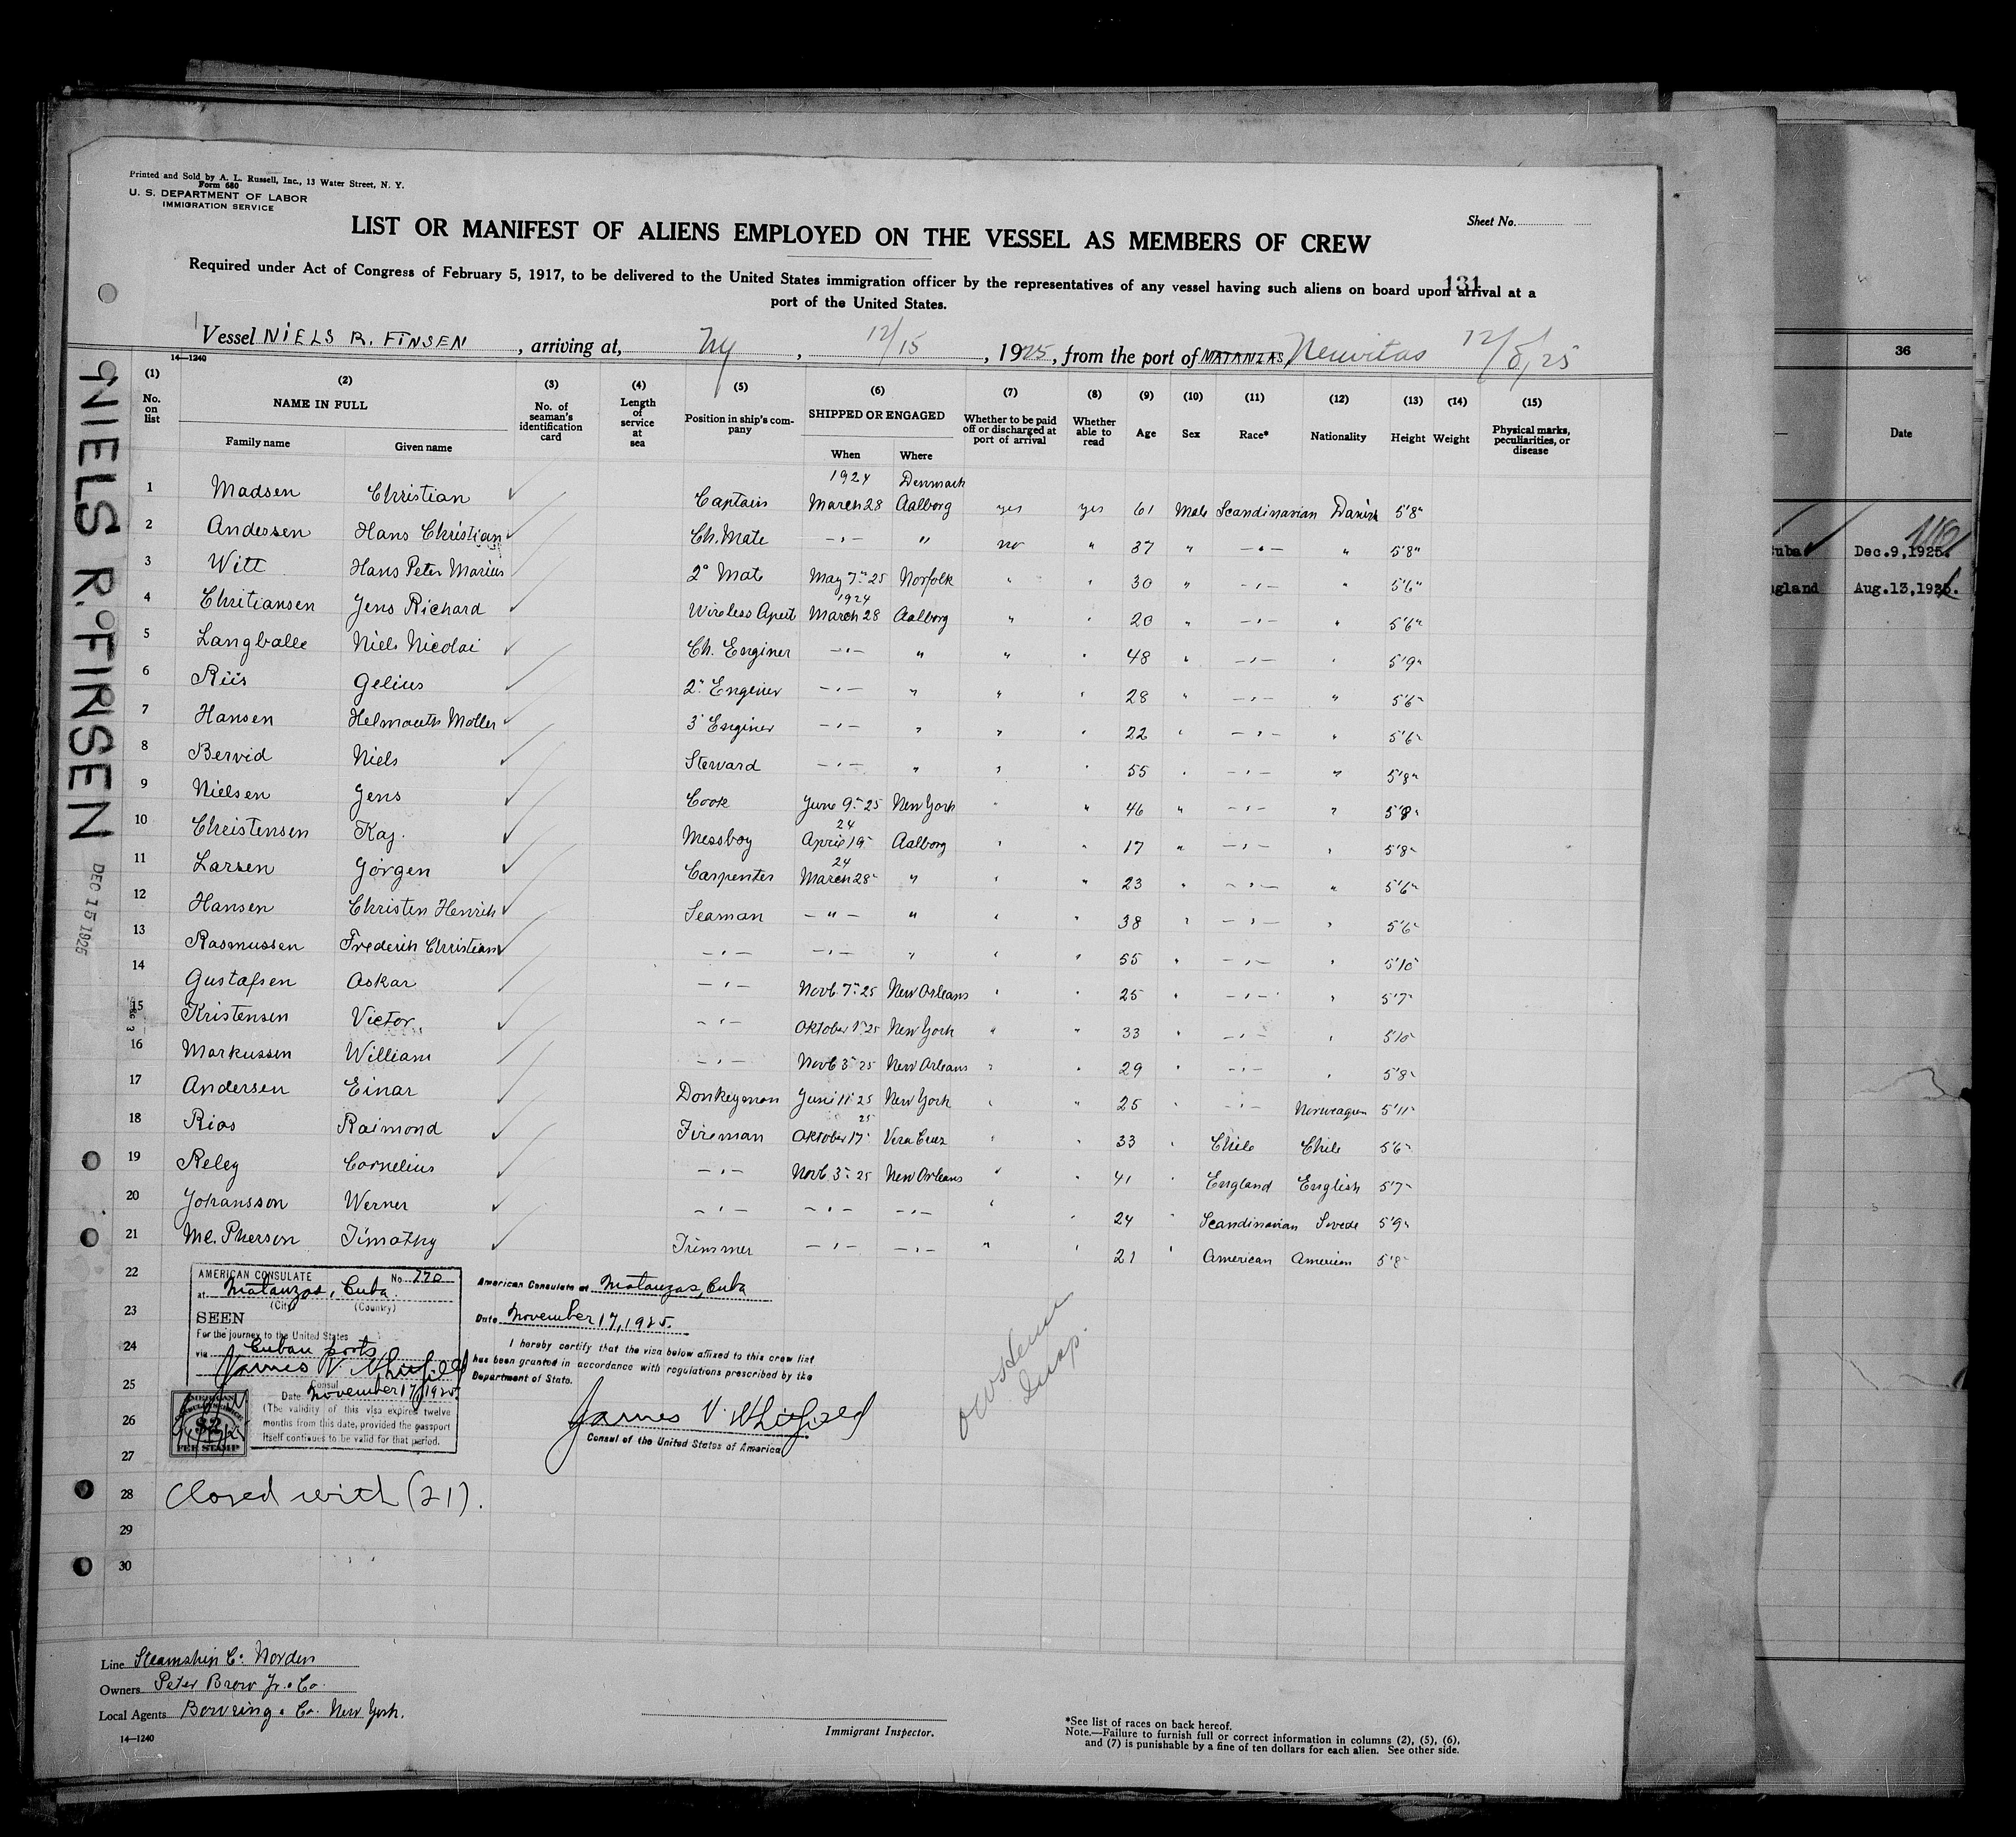 Printed and Sold by A. L. Russell, Inc., 13 Water Street, N. Y.
Form 680
U. S. DEPARTMENT OF LABOR
IMMIGRATION SERVICE
Sheet No.
LIST OR MANIFEST OF ALIENS EMPLOYED ON THE VESSEL AS MEMBERS OF CREW
131
Required under Act of Congress of February 5, 1917, to be delivered to the United States immigration officer by the representatives of any vessel having such aliens on board upon arrival at a
port of the United States.
Vessel NIELS R. FINSEN, arriving at, NY, 12/15, 1925, from the port of MATANZAS, Neuvitas 12/8/25
14—1240
(1) No. on list (2) NAME IN FULL Family name Given name (3) No. of seaman's identification card (4) Length of service at sea (5) Position in ship's company (6) SHIPPED OR ENGAGED When Where (7) Whether to be paid off or discharged at port of arrival (8) Whether able to read (9) Age (10) Sex (11) Race* (12) Nationality (13) Height (14) Weight (15) Physical marks, peculiarities, or disease
1924 Denmark
1 Madsen Christian Captain March 28 Aalborg yes yes 61 Male Scandinavian Danish 5'8"
2 Andersen Hans Christian Ch. Mate -"- " no " 37 " -"- " 5'8"
3 Witt Hans Peter Marius 2° Mate May 7" 25 Norfolk " " 30 " -"- " 5'6"
1924
4 Chritiansen Jens Richard Wireless Apert March 28 Aalborg " " 20 " -"- " 5'6"
5 Langballe Niels Nicolai Ch. Enginer -"- " " " 48 " -"- " 5'9"
6 Riis Gelius 2" Enginer -"- " " " 28 " -"- " 5'6"
7 Hansen Helmouth Moller 3" Enginer -"- " " " 22 " -"- " 5'6"
8 Bervid Niels Steward -"- " " " 55 " -"- " 5'8"
9 Nielsen Jens Cook June 9" 25 New York " " 46 " -"- " 5'8"
24
10 Christensen Kaj. Messboy April 19" Aalborg " " 17 " -"- " 5'8"
24
11 Larsen Jörgen Carpenter March 28" " " " 23 " -"- " 5'6"
12 Hansen Christen Henrik Seaman -"- " " " 38 " -"- " 5'6"
13 Rasmussen Frederik Christian -"- -"- " " " 55 " -"- " 5'10"
14 Gustafsen Oskar -"- Novb. 7" 25 New Orleans " " 25 " -"- " 5'7"
15 Kristensen Victor -"- Oktober 1" 25 New York " " 33 " -"- " 5'10"
16 Markussen William -"- Novb 3" 25 New Orleans " " 29 " -"- " 5'8"
17 Andersen Einar Donkeyman Juni 11" 25 New York " " 25 " -"- Norweagen 5'11"
25
18 Rios Raimond Fireman Oktober 17" Vera Cruz " " 33 " Chile Chile 5'6"
19 Reley Cornelius -"- Novb. 3" 25 New Orleans " " 41 " England English 5'7"
20 Johansson Werner -"- -"- -"- " " 24 " Scandinavian Swede 5'9"
21 Mc. Pherson Timothy Trimmer -"- -"- " " 21 " American American 5'8"
22
23
24
25
26
27
28 Closed with (21).
29
30
AMERICAN CONSULATE No 770
at Matanzas, Cuba.
(City) (Country)
SEEN
For the journey to the United States
via Cuban ports
James V. Whitfield
Consul
Date November 17, 1925
(The validity of this visa expires twelve
months from this date, provided the passport
itself continues to be valid for that period.
AMERICAN
$2
PER STAMP
American Consulate at Matanzas, Cuba
Date November 17, 1925.
I hereby certify that the visa below affixed to this crew list
has been granted in accordance with regulations prescribed by the
Department of State.
James V. Whitfield
Consul of the United States of America
Insp.
Line Steamship Co. Norden
Owners Peter Brow Jr. & Co.
Local Agents Bowring & Co. New York.
14—1240
Immigrant Inspector.
*See list of races on back hereof.
Note.—Failure to furnish full or correct information in columns (2), (5), (6),
and (7) is punishable by a fine of ten dollars for each alien. See other side.
NIELS R. FINSEN
DEC 15 1925
36
Date
Cuba Dec. 9, 1925.
England Aug. 13, 1925.